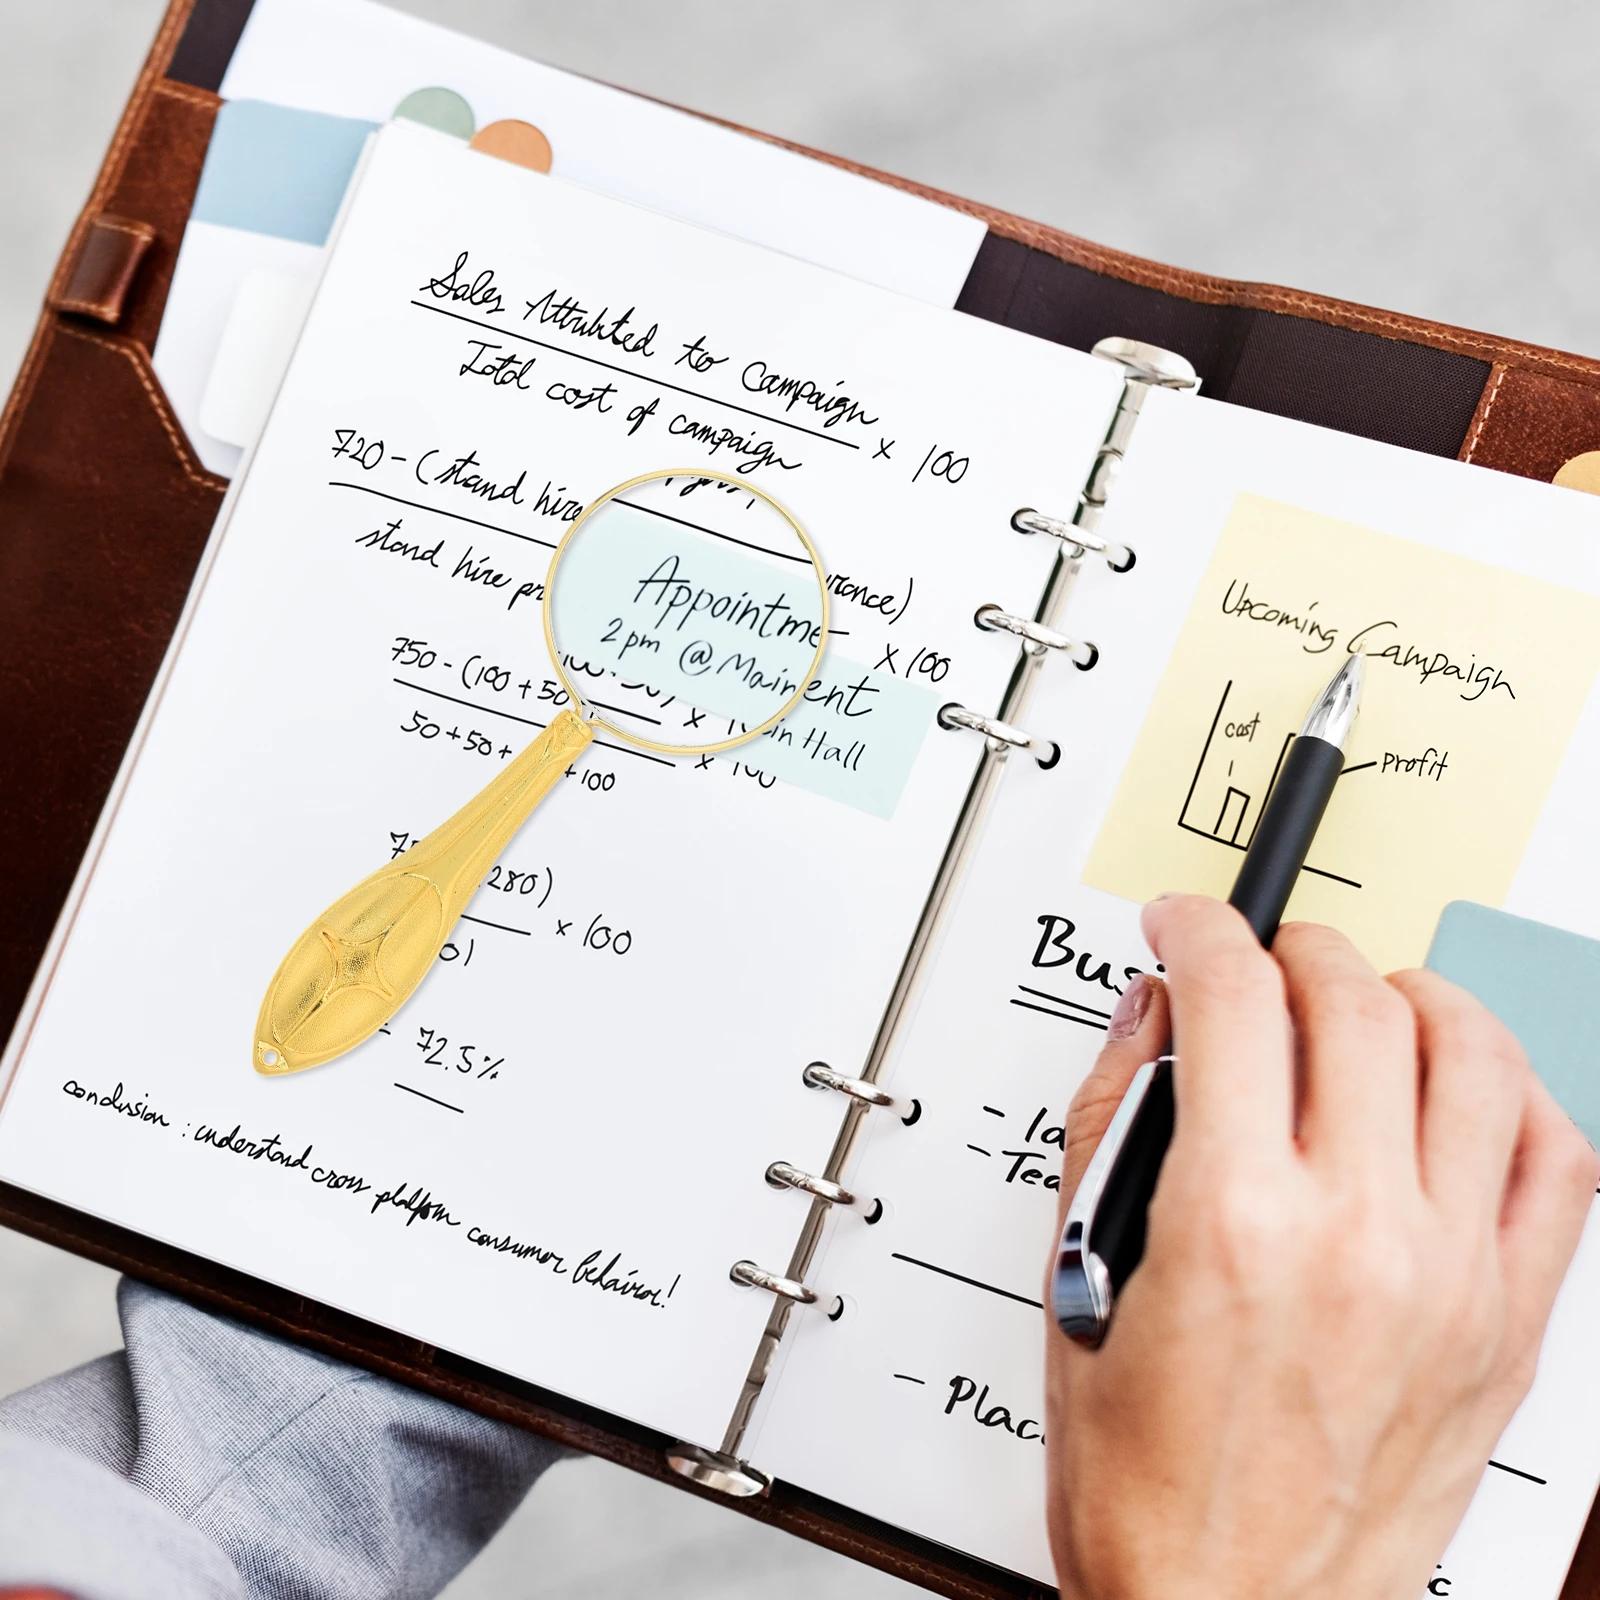 Sales Attributed to Campaign
Total cost of campaign
x 100
720 - (stand hire
rance)
stand hire pr
x 100
Appointme
ent
2 pm @ Main
in Hall
750 - (100 + 50
x
50 + 50 +
+ 100
x 100
280)
0)
x 100
= 72.5%
conclusion : understand cross platform consumer behavior!
Upcoming Campaign
cost
profit
Busi
- Ta
- Tea
- Plac
c